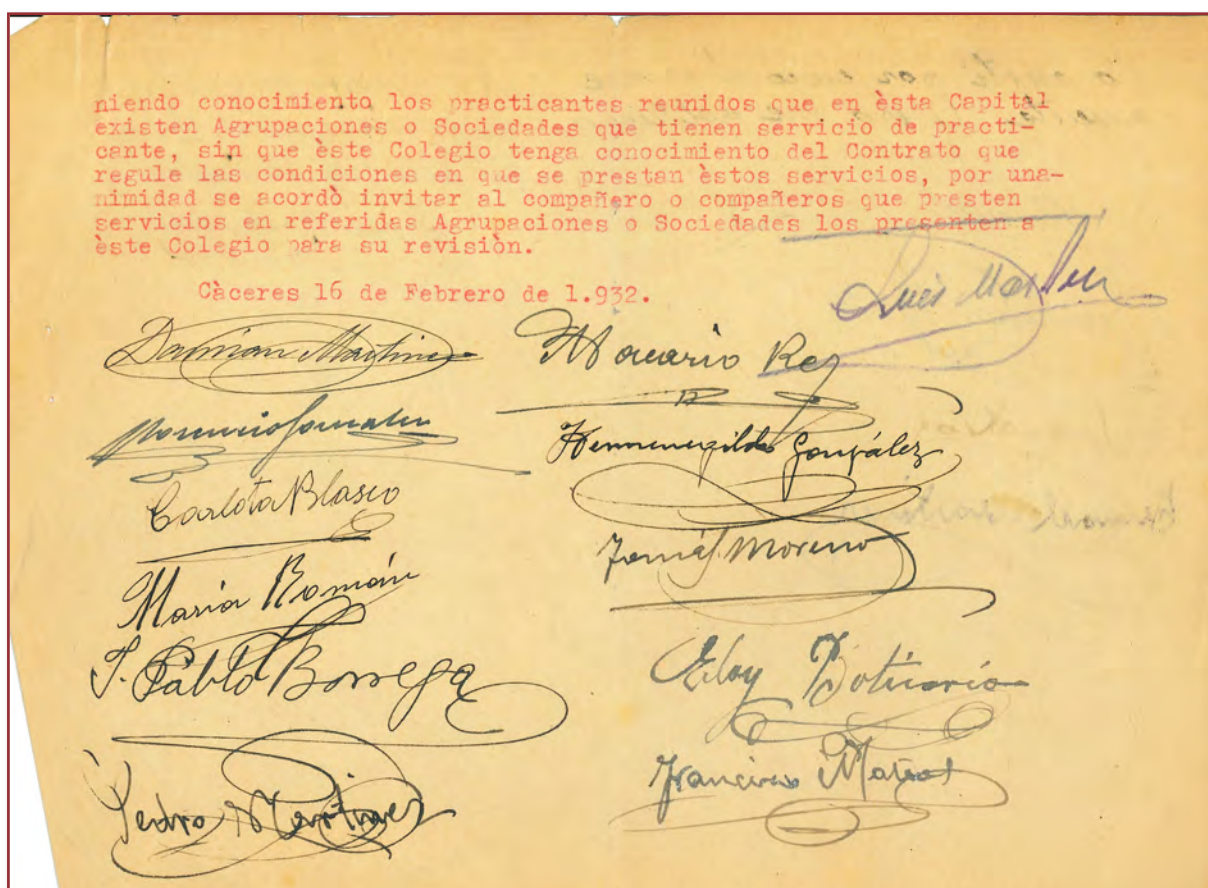 niendo conocimiento los practicantes reunidos que en èsta Capital
existen Agrupaciones o Sociedades que tienen servicio de practi-
cante, sin que èste Colegio tenga conocimiento del Contrato que
regule las condiciones en que se prestan èstos servicios, por una-
nimidad se acordò invitar al compañero o compañeros que presten
servicios en referidas Agrupaciones o Sociedades los presenten a
èste Colegio para su revisiòn.
Càceres 16 de Febrero de 1.932.
Luis Martin
Damian Martinez
Macario Rey
Gonzalez
Hermenegildo González
Carlota Blasco
Tomás Moreno
Maria Román
P. Pablo Borrega
Eloy Boticario
Francisco Mateos
Pedro Martinez